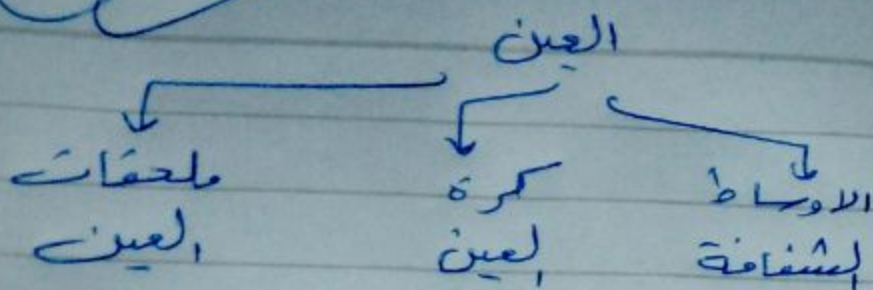 العين
الاوساط الشفافة
كرة العين
ملحقات العين